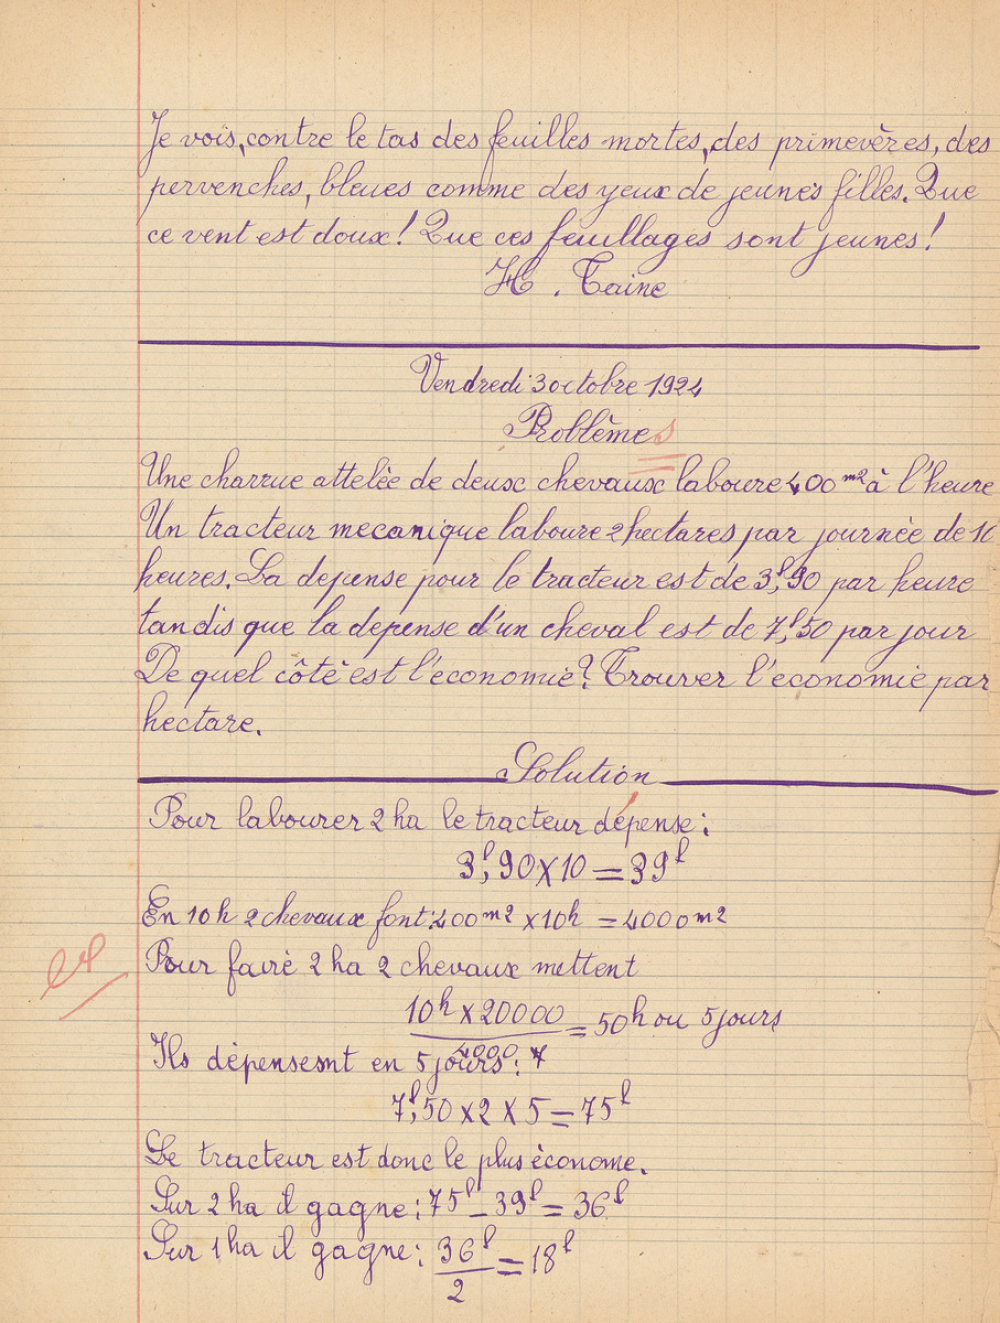 Je vois, contre le tas des feuilles mortes, des primevères, des
pervenches, bleues comme des yeux de jeunes filles. Que
ce vent est doux! Que ces feuillages sont jeunes!
H. Taine
Vendredi 3 octobre 1924
Problèmes
Une charrue attelée de deux chevaux laboure 400 m² à l'heure
Un tracteur mecanique laboure 2 hectares par journée de 10
heures. La depense pour le tracteur est de 3f,90 par heure
tandis que la depense d'un cheval est de 7f,50 par jour
De quel côté est l'économie? Trouver l'economie par
hectare.
Solution
Pour labourer 2 ha le tracteur dépense:
3f,90 x 10 = 39f
En 10 h 2 chevaux font: 400 m² x 10h = 4000 m²
Pour faire 2 ha 2 chevaux mettent
10h x 20000
= 50h ou 5 jours
4000
Ils dépensesnt en 5 jours:
7f,50 x 2 x 5 = 75f
Le tracteur est donc le plus économe.
Sur 2 ha il gagne: 75f - 39f = 36f
Sur 1 ha il gagne: 36f = 18f
2